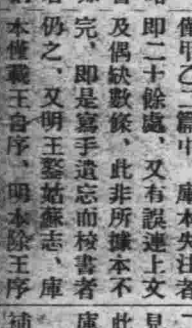 僅甲乙二篇中　庫本失注者
即二十餘處，又有誤連上文
及偶缺數條，此非所據本不
完，即是寫手遺忘而校書者
仍之，又明王鏊姑蘇志、庫
本僅載王自序、明本除王序